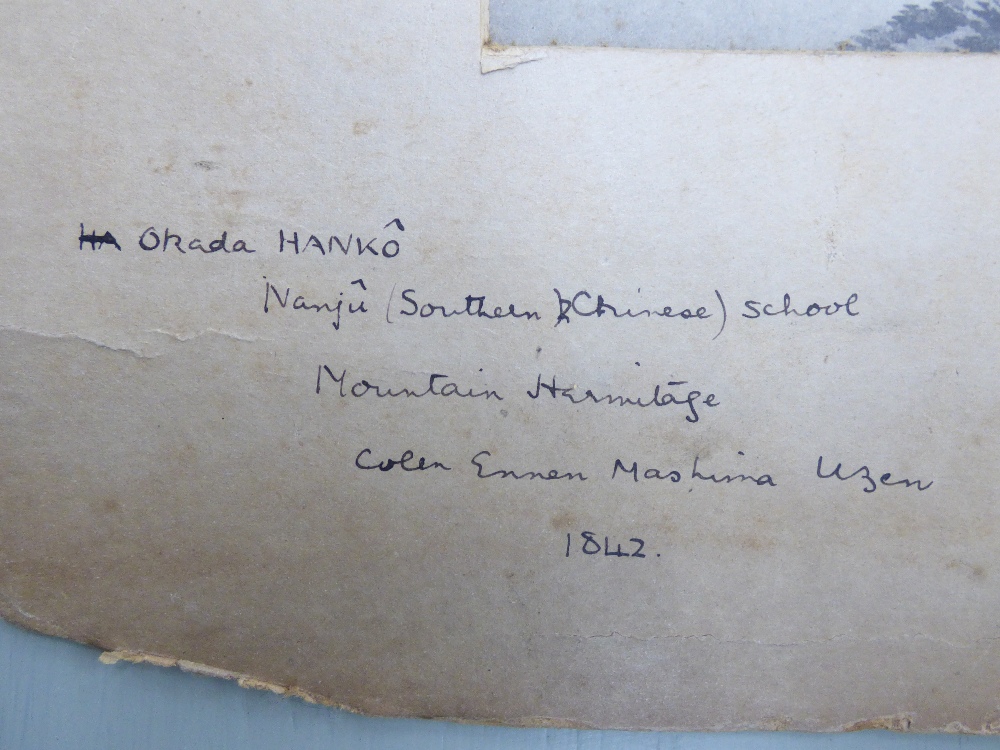 HA Okada HANKÔ
Nanjû (Southern Chinese) school
Mountain Hermitage
Colen Ennen Mashima Uzen
1842.